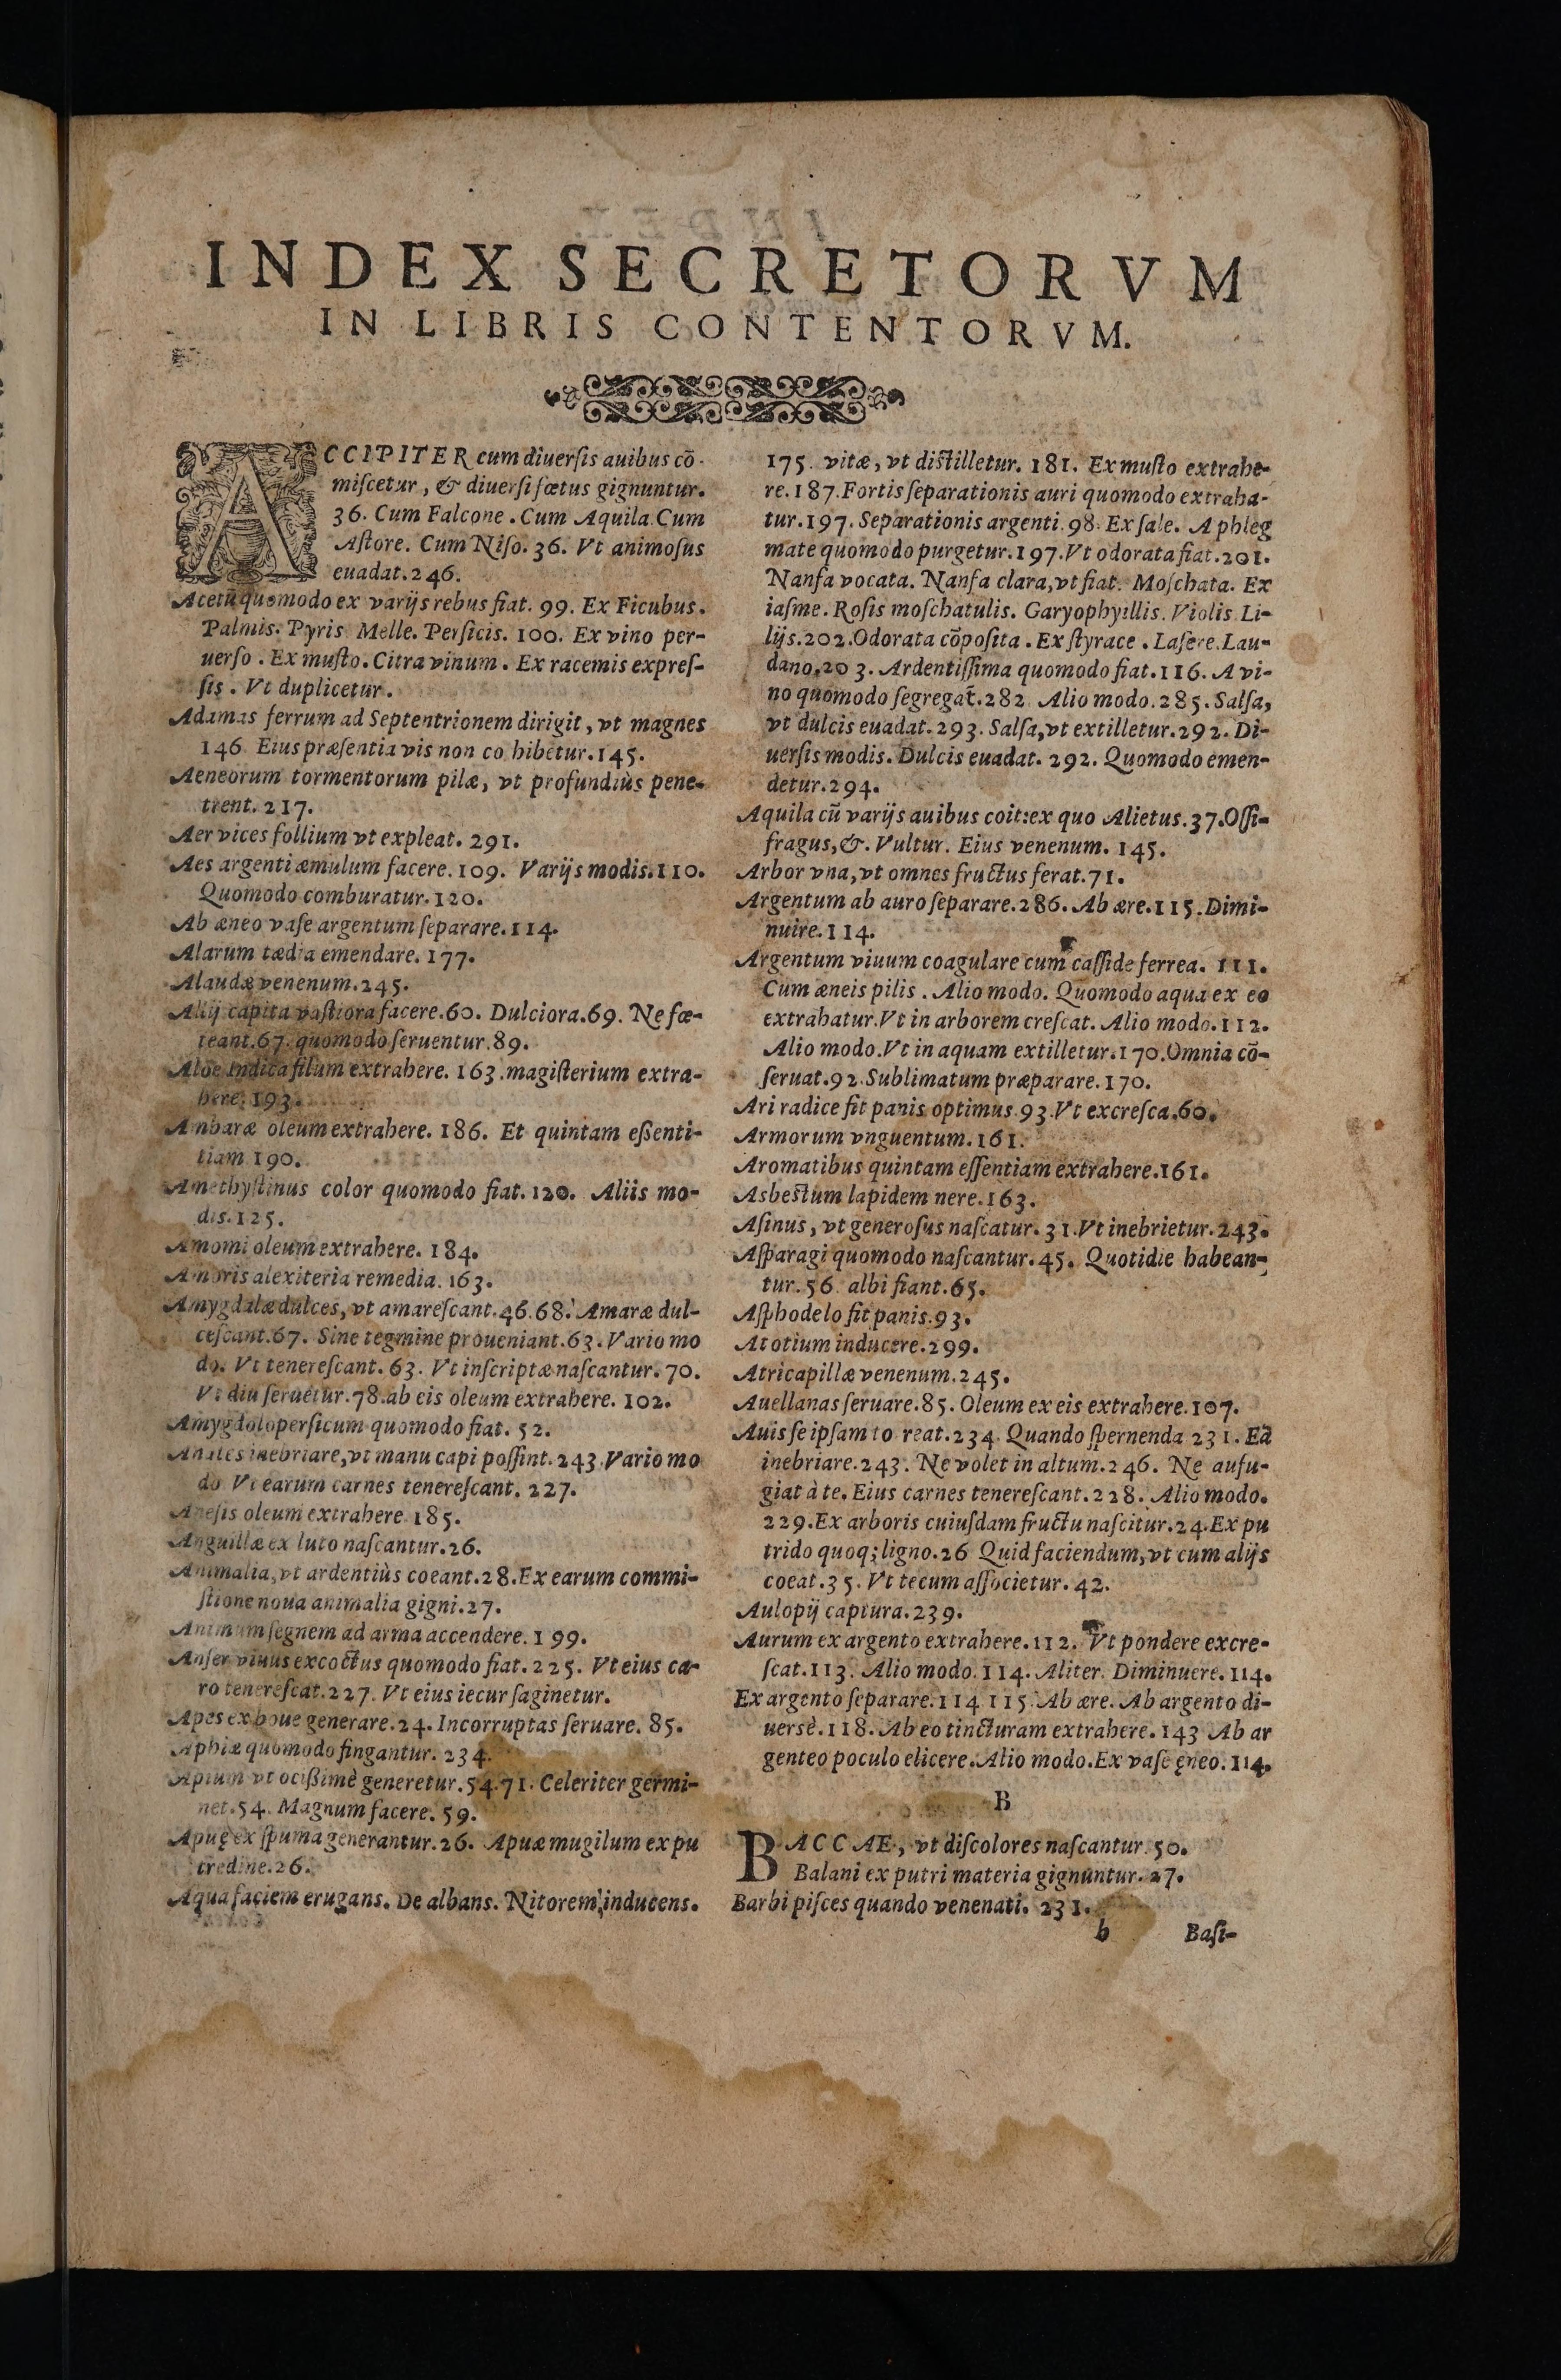 INDEX SECRETORVM
IN LIBRIS CONTENTORVM.
ACCIPITER cum diuerſis auibus cõ-
miſcetur, & diuerſi fœtus gignuntur.
36. Cum Falcone. Cum Aquila. Cum
Aſtore. Cum Niſo. 36. Vt animoſus
euadat. 246.
Acetũ quomodo ex varijs rebus fiat. 99. Ex Ficubus.
Palmis. Pyris. Melle. Perſicis. 100. Ex vino per-
uerſo. Ex muſto. Citra vinum. Ex racemis expreſ-
ſis. Vt duplicetur.
Adamas ferrum ad Septentrionem dirigit, vt magnes
146. Eius præſentia vis non cohibetur. 145.
Aeneorum tormentorum pilæ, vt profundiùs pene-
trent. 217.
Aer vices follium vt expleat. 291.
Aes argenti æmulum facere. 109. Varijs modis. 110.
Quomodo comburatur. 120.
Ab æneo vaſe argentum ſeparare. 114.
Alarum tædia emendare. 177.
Alaudæ venenum. 245.
Allij capita vaſtiora facere. 60. Dulciora. 69. Ne fœ-
teant. 67. quomodo ſeruentur. 89.
Aloe Indica filum extrahere. 163. magiſterium extra-
here. 193.
Ambaræ oleum extrahere. 186. Et quintam eſſenti-
tiam 190.
Amethyſtinus color quomodo fiat. 120. Aliis mo-
dis. 125.
Amomi oleum extrahere. 184.
Amoris alexiteria remedia. 163.
Amygdalæ dulces, vt amareſcant. 46. 68. Amaræ dul-
ceſcant. 67. Sine tegmine proueniant. 63. Vario mo
do. Vt tenereſcant. 63. Vt inſcriptæ naſcantur. 70.
Vt diu ſeruẽtur. 78. ab eis oleum extrahere. 102.
Amygdoloperſicum quomodo fiat. 52.
Anates inebriare, vt manu capi poſſint. 243. Vario mo
do Vt earum carnes tenereſcant. 227.
Aneſis oleum extrahere. 185.
Anguillæ ex luto naſcantur. 26.
Animalia, vt ardentiùs coeant. 28. Ex earum commi-
ſtione noua animalia gigni. 27.
Animum ſegnem ad arma accendere. 199.
Anſer viuus excoctus quomodo fiat. 225. Vt eius ca-
ro tenereſcat. 227. Vt eius iecur ſaginetur.
Apes ex boue generare. 24. Incorruptas ſeruare. 85.
Aphiæ quomodo fingantur. 234.
Apium vt ocißimè generetur. 54. 71. Celeriter germi-
net. 54. Magnum facere. 59.
Apuę ex ſpuma generantur. 26. Apuæ mugilum ex pu
tredine. 26.
Aqua faciem erugans. De albans. Nitorem inducens.
175. vitæ, vt diſtilletur. 181. Ex muſto extrahe-
re. 187. Fortis ſeparationis auri quomodo extraha-
tur. 197. Separationis argenti. 98. Ex ſale. A phleg
mate quomodo purgetur. 197. Vt odorata fiat. 201.
Nanfa vocata. Nanfa clara, vt fiat. Moſchata. Ex
iaſme. Roſis moſchatulis. Garyophyillis. Violis. Li-
lijs. 202. Odorata cõpoſita. Ex ſtyrace. Laſere. Lau-
dano, 203. Ardentiſſima quomodo fiat. 116. A vi-
no quomodo ſegregat̃. 282. Alio modo. 285. Salſa,
vt dulcis euadat. 293. Salſa, vt extilletur. 292. Di-
uerſis modis. Dulcis euadat. 292. Quomodo emen-
detur. 294.
Aquila cũ varijs auibus coit: ex quo Alietus. 37. Oſſi-
fragus, &. Vultur. Eius venenum. 145.
Arbor vna, vt omnes fructus ferat. 71.
Argentum ab auro ſeparare. 286. Ab ære. 115. Dimi-
nuire. 114.
Argentum viuum coagulare cum caſſide ferrea. 111.
Cum æneis pilis. Alio modo. Quomodo aqua ex eo
extrahatur. Vt in arborem creſcat. Alio modo. 112.
Alio modo. Vt in aquam extilletur. 170. Omnia cõ-
ſeruat. 92. Sublimatum præparare. 170.
Ari radice fit panis optimus. 93. Vt excreſca. 60.
Armorum vnguentum. 161.
Aromatibus quintam eſſentiam extrahere. 161.
Asbeſtum lapidem nere. 163.
Aſinus, vt generoſus naſcatur. 31. Vt inebrietur. 243.
Aſparagi quomodo naſcantur. 45. Quotidie habean-
tur. 56. albi fiant. 65.
Aſphodelo fit panis. 93.
Atotium inducere. 299.
Atricapillæ venenum. 245.
Auellanas ſeruare. 85. Oleum ex eis extrahere. 107.
Auis ſe ipſam to reat. 234. Quando ſpernenda 231. Eã
inebriare. 243. Ne volet in altum. 246. Ne aufu-
giat à te. Eius carnes tenereſcant. 228. Alio modo.
229. Ex arboris cuiuſdam fructu naſcitur. 24. Ex pu
trido quoq; ligno. 26 Quid faciendum, vt cum alijs
coeat. 35. Vt tecum aſſocietur. 42.
Aulopij captura. 239.
Aurum ex argento extrahere. 112. Vt pondere excre-
ſcat. 113. Alio modo. 114. Aliter. Diminuere. 114.
Ex argento ſeparare. 114 115. Ab ære. Ab argento di-
uersè. 118. Ab eo tincturam extrahere. 143 Ab ar
genteo poculo elicere. Alio modo. Ex vaſe ęneo. 114.
B
BACCAE, vt diſcolores naſcantur. 50.
Balani ex putri materia gignuntur. 27.
Barbi piſces quando venenati. 231.
b Baſi-